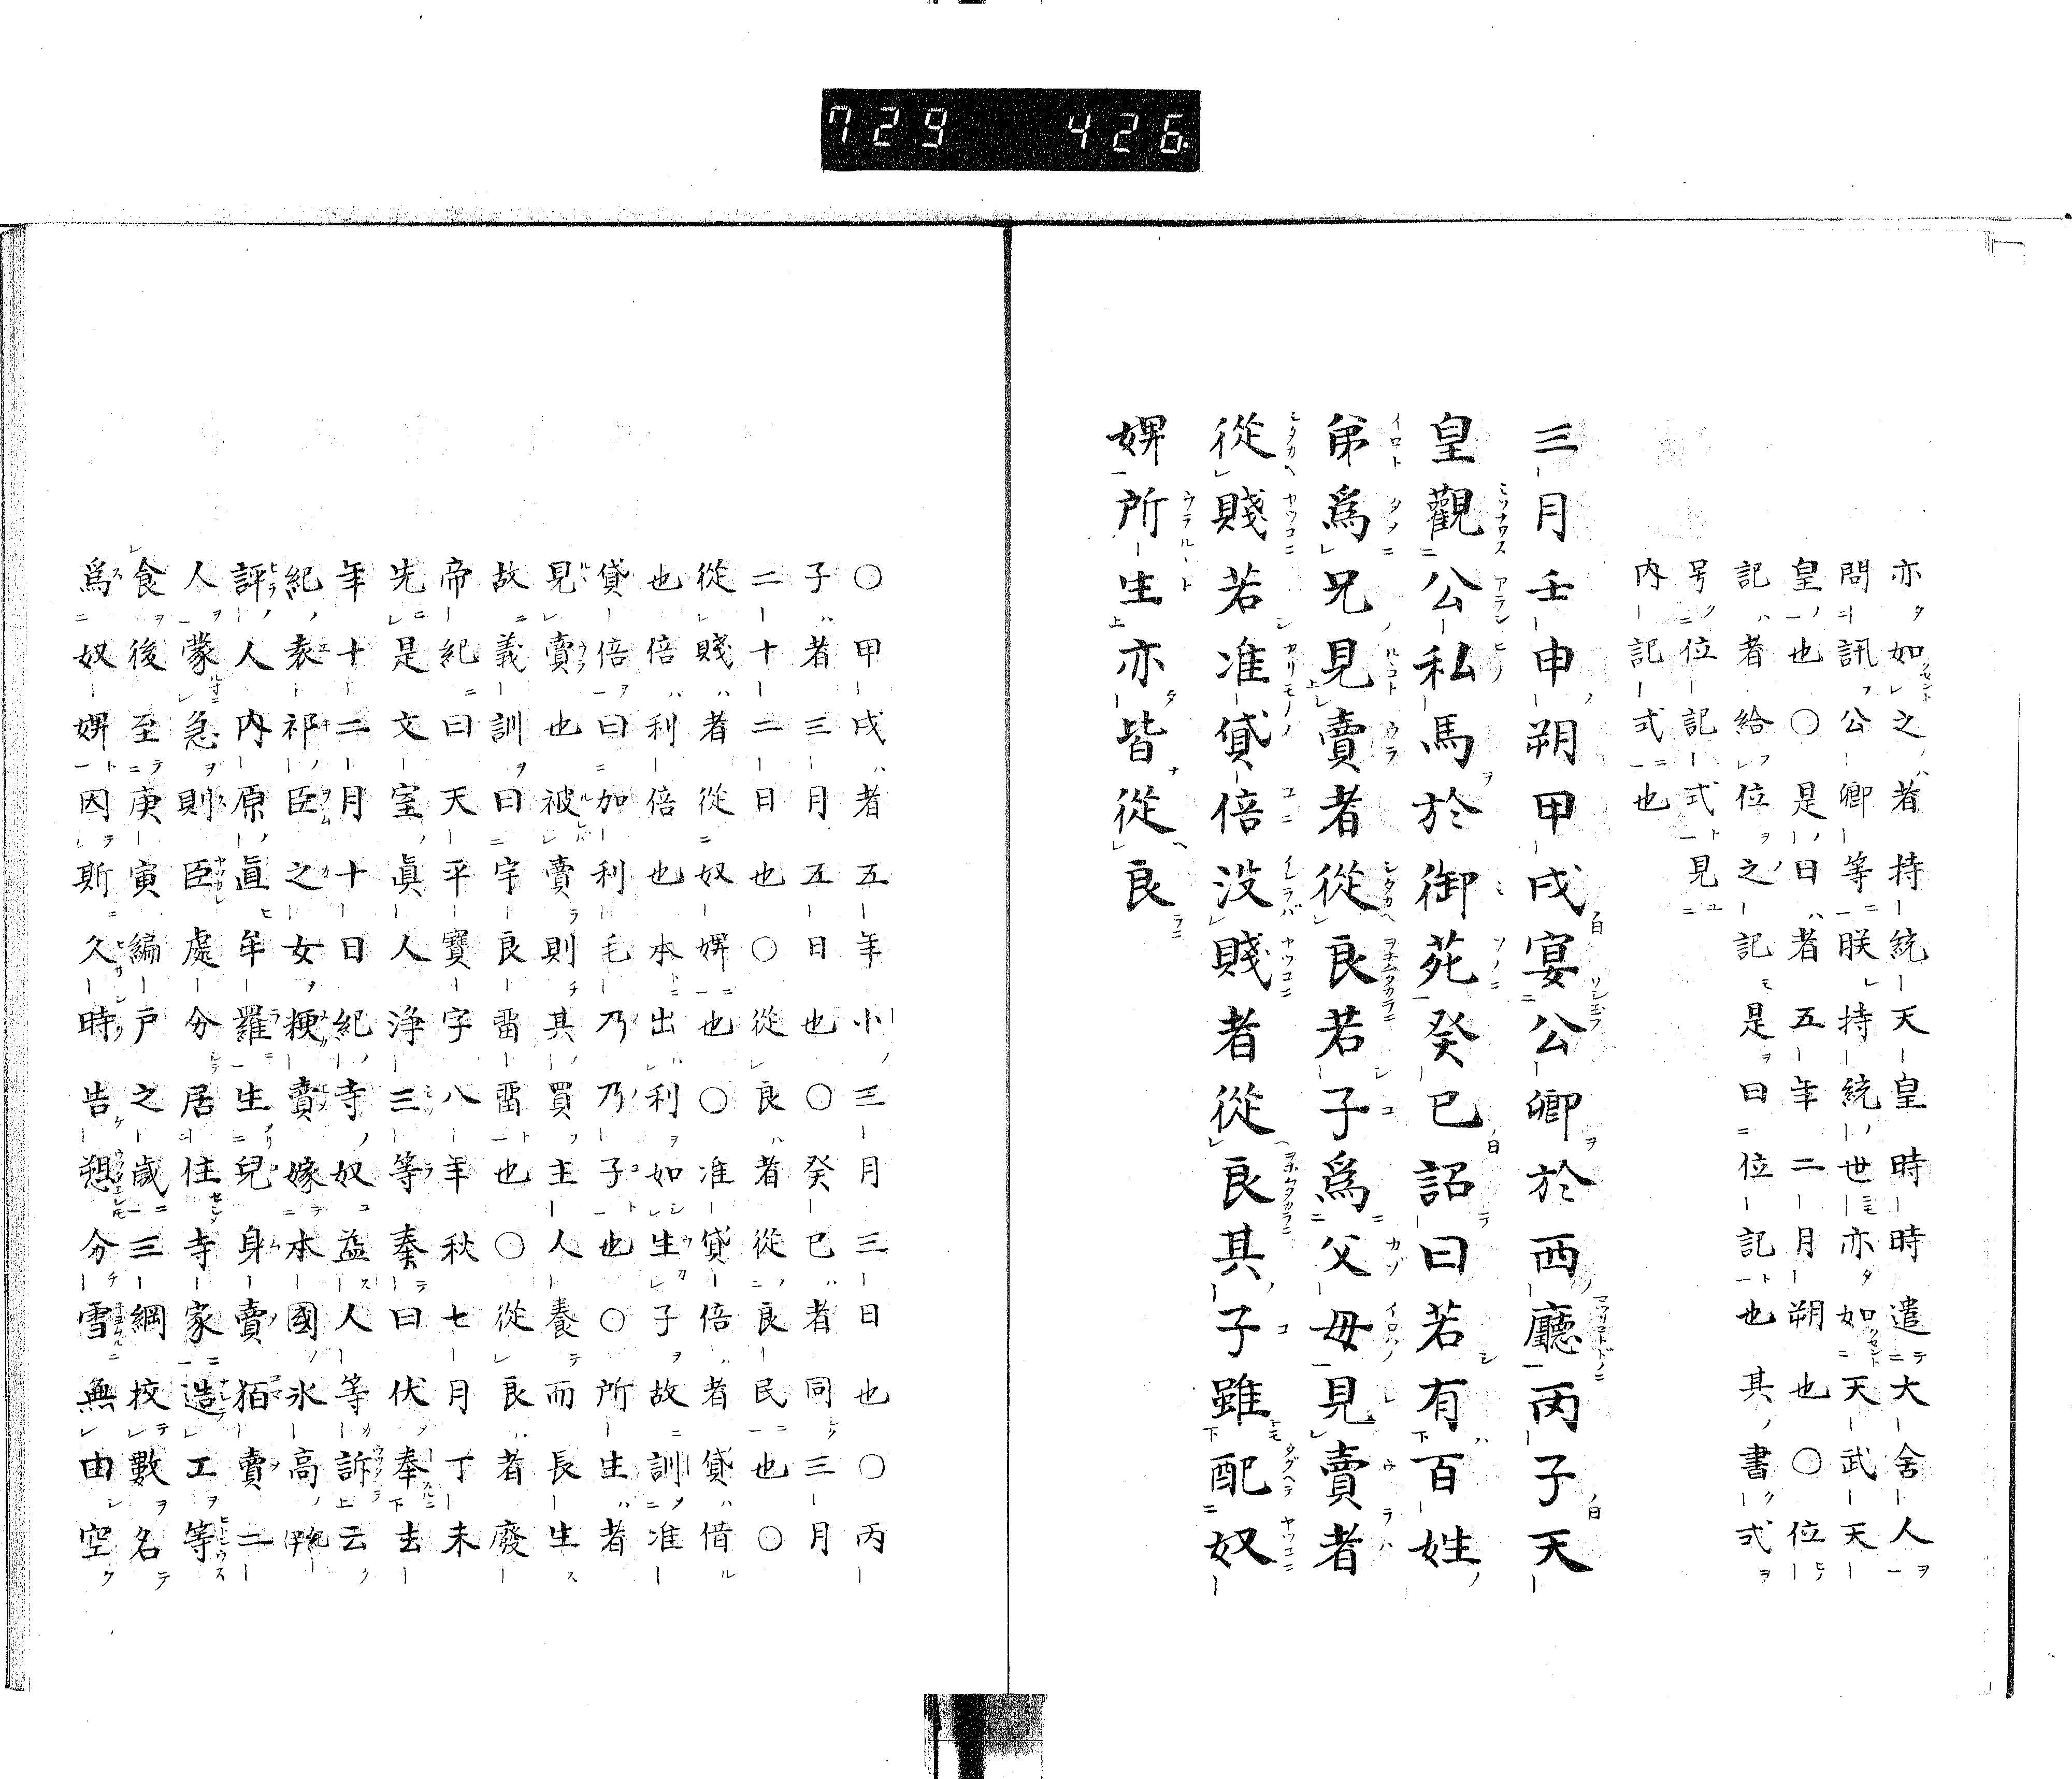 729 426
亦如之者持統天皇時時遣大舎人
問訊公卿等朕持統世亦如天武天
皇也〇是日者五年二月朔也〇位
記者給位之記是曰位記也其書式
号位記式見
内記式也
三月壬申朔甲戌宴公卿於西廳丙子天
皇觀公私馬於御苑癸巳詔曰若有百姓
弟爲兄見賣者從良若子爲父母見賣者
從賤若准貸倍没賤者從良其子雖配奴
婢所生亦皆從良
〇甲戌者五年小三月三日也〇丙
子者三月五日也〇癸巳者同三月
二十二日也〇從良者從良民也〇
從賤者從奴婢也〇准貸倍者貸借
也倍利倍也本出利如生子故訓准
貸倍曰加利毛乃乃子也〇所生者
見賣也被賣則其買主人養而長生
故義訓曰宇良畱畱也〇從良者廢
帝紀曰天平寶字八年秋七月丁未
先是文室眞人淨三等奏曰伏奉去
年十二月十日紀寺奴益人等訴云
紀袁祁臣之女粳賣嫁本國氷高
評人内原直牟羅生兒身賣狛賣二
人蒙急則臣處分居住寺家造工等
食後至庚寅編戸之歳三綱挍數名
爲奴婢因斯久時告愬分雪無由空